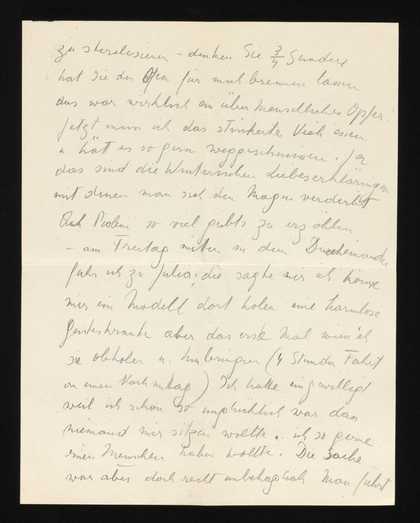 zu sterilisieren – denken Sie 3/4 Stunden
hat Sie den Ofen für mich brennen lassen
das war wirklich ein übermenschliches Opfer.
Jetzt muss ich das stinkende Vieh essen
u hätt es so gern weggeschmissen. Ja
das sind die Liebeserklärungen
mit denen man sich den Magen verdirbt
Ach so viel gibts zu erzählen
– am Freitag mitten in dem Durcheinander
fuhr ich zu Julia; die sagte mir ich könne
mir ein Modell dort holen eine harmlose
Geisteskranke aber das erste Mal müss ich
sie abholen u. hinbringen (4 Stunden Fahrt
an einem Nachmittag) Ich hatte eingewilligt
weil ich schon so unglücklich war dass
niemand mir sitzen wollte u. ich so gerne
einen Menschen haben wollte. Die Sache
war aber doch recht unbehaglich Man fährt